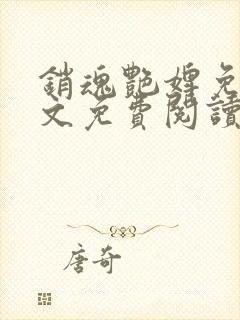 銷魂艷婢免
文免費閱讀
唐奇